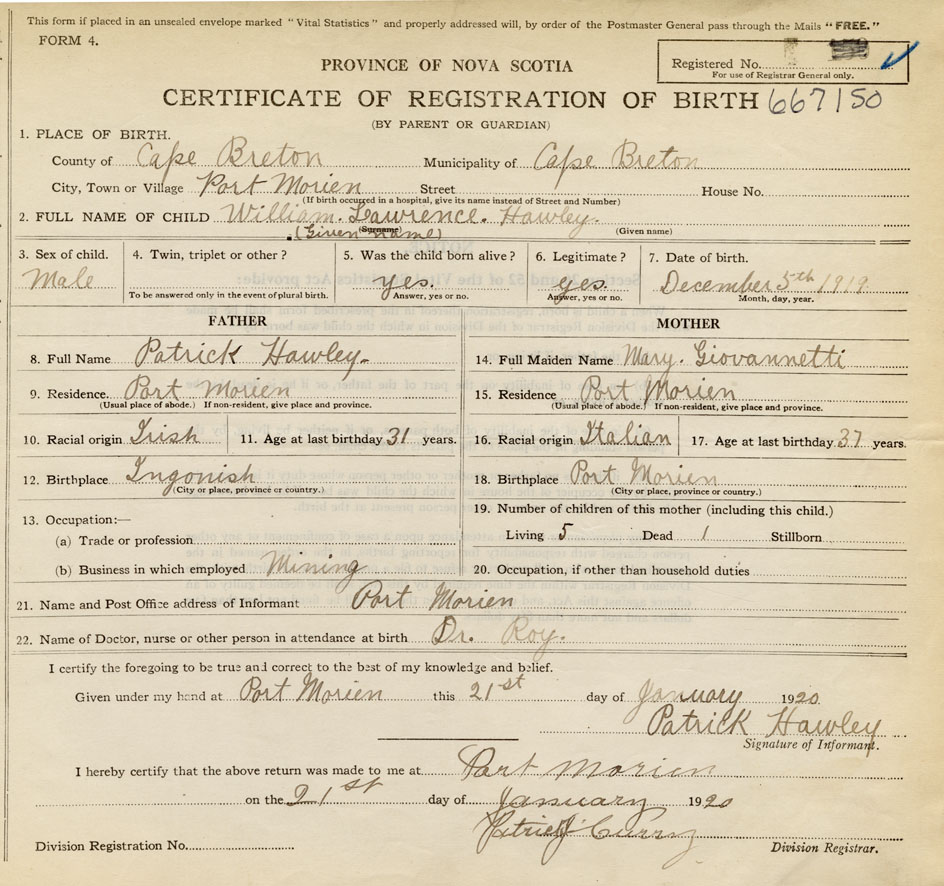 This form if placed in an unsealed envelope marked "Vital Statistics" and properly addressed will, by order of the Postmaster General pass through the Mails "FREE."
FORM 4.
Registered No.
For use of Registrar General only.
PROVINCE OF NOVA SCOTIA
CERTIFICATE OF REGISTRATION OF BIRTH 667150
(BY PARENT OR GUARDIAN)
1. PLACE OF BIRTH.
County of Cape Breton Municipality of Cape Breton
City, Town or Village Port Morien Street House No.
(If birth occurred in a hospital, give its name instead of Street and Number)
2. FULL NAME OF CHILD William. Lawrence. Hawley.
(Given name) (Surname) (Given name)
3. Sex of child. 4. Twin, triplet or other? 5. Was the child born alive? 6. Legitimate? 7. Date of birth.
Male yes. yes. December 5th 1919
To be answered only in the event of plural birth. Answer, yes or no. Answer, yes or no. Month, day, year.
FATHER
8. Full Name Patrick Hawley
9. Residence. Port Morien
(Usual place of abode.) If non-resident, give place and province.
10. Racial origin Irish 11. Age at last birthday 31 years.
12. Birthplace Ingonish
(City or place, province or country.)
13. Occupation:—
(a) Trade or profession
(b) Business in which employed Mining
MOTHER
14. Full Maiden Name Mary. Giovannetti
15. Residence Port Morien
(Usual place of abode.) If non-resident, give place and province.
16. Racial origin Italian 17. Age at last birthday 37 years.
18. Birthplace Port Morien
(City or place, province or country.)
19. Number of children of this mother (including this child.)
Living 5 Dead 1 Stillborn
20. Occupation, if other than household duties
21. Name and Post Office address of Informant Port Morien
22. Name of Doctor, nurse or other person in attendance at birth Dr. Roy.
I certify the foregoing to be true and correct to the best of my knowledge and belief.
Given under my hand at Port Morien this 21st day of January 1920
Patrick Hawley
Signature of Informant.
I hereby certify that the above return was made to me at Port Morien
on the 21st day of January 1920
Patrick J Curry
Division Registration No. Division Registrar.